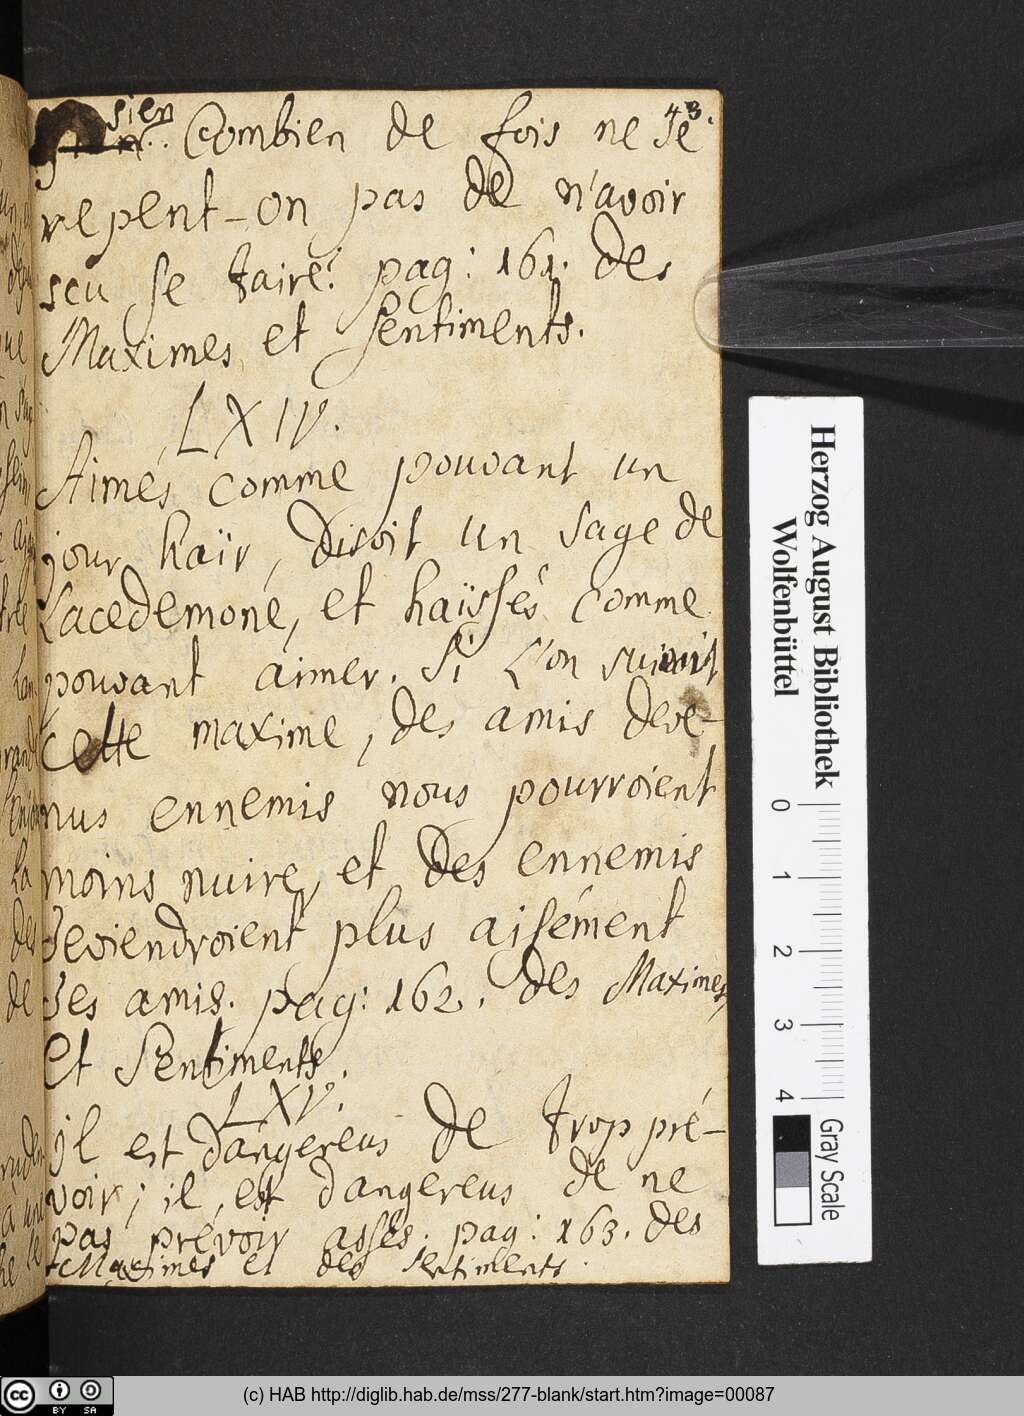 43.
sien
n. Combien de fois ne se
repent-on pas de n'avoir
scu se taire! pag: 161. des
Maximes et Sentiments.
LXIV.
Aimés comme pouvant un
jour haïr, disoit un sage de
Lacedemone, et haïssés comme
pouvant aimer. Si l'on suivoit
cette maxime, des amis deve-
nus ennemis nous pourroient
moins nuire, et des ennemis
deviendroient plus aisément
des amis. pag: 162. des Maximes,
et Sentiments.
LXV.
il est dangereus de trop pré-
voir; il est dangereus de ne
pas prévoir assés. pag: 163. des
Maximes et des sentiments.
Herzog August Bibliothek
Wolfenbüttel
0 1 2 3 4
Gray Scale
cc BY SA
(c) HAB http://diglib.hab.de/mss/277-blank/start.htm?image=00087